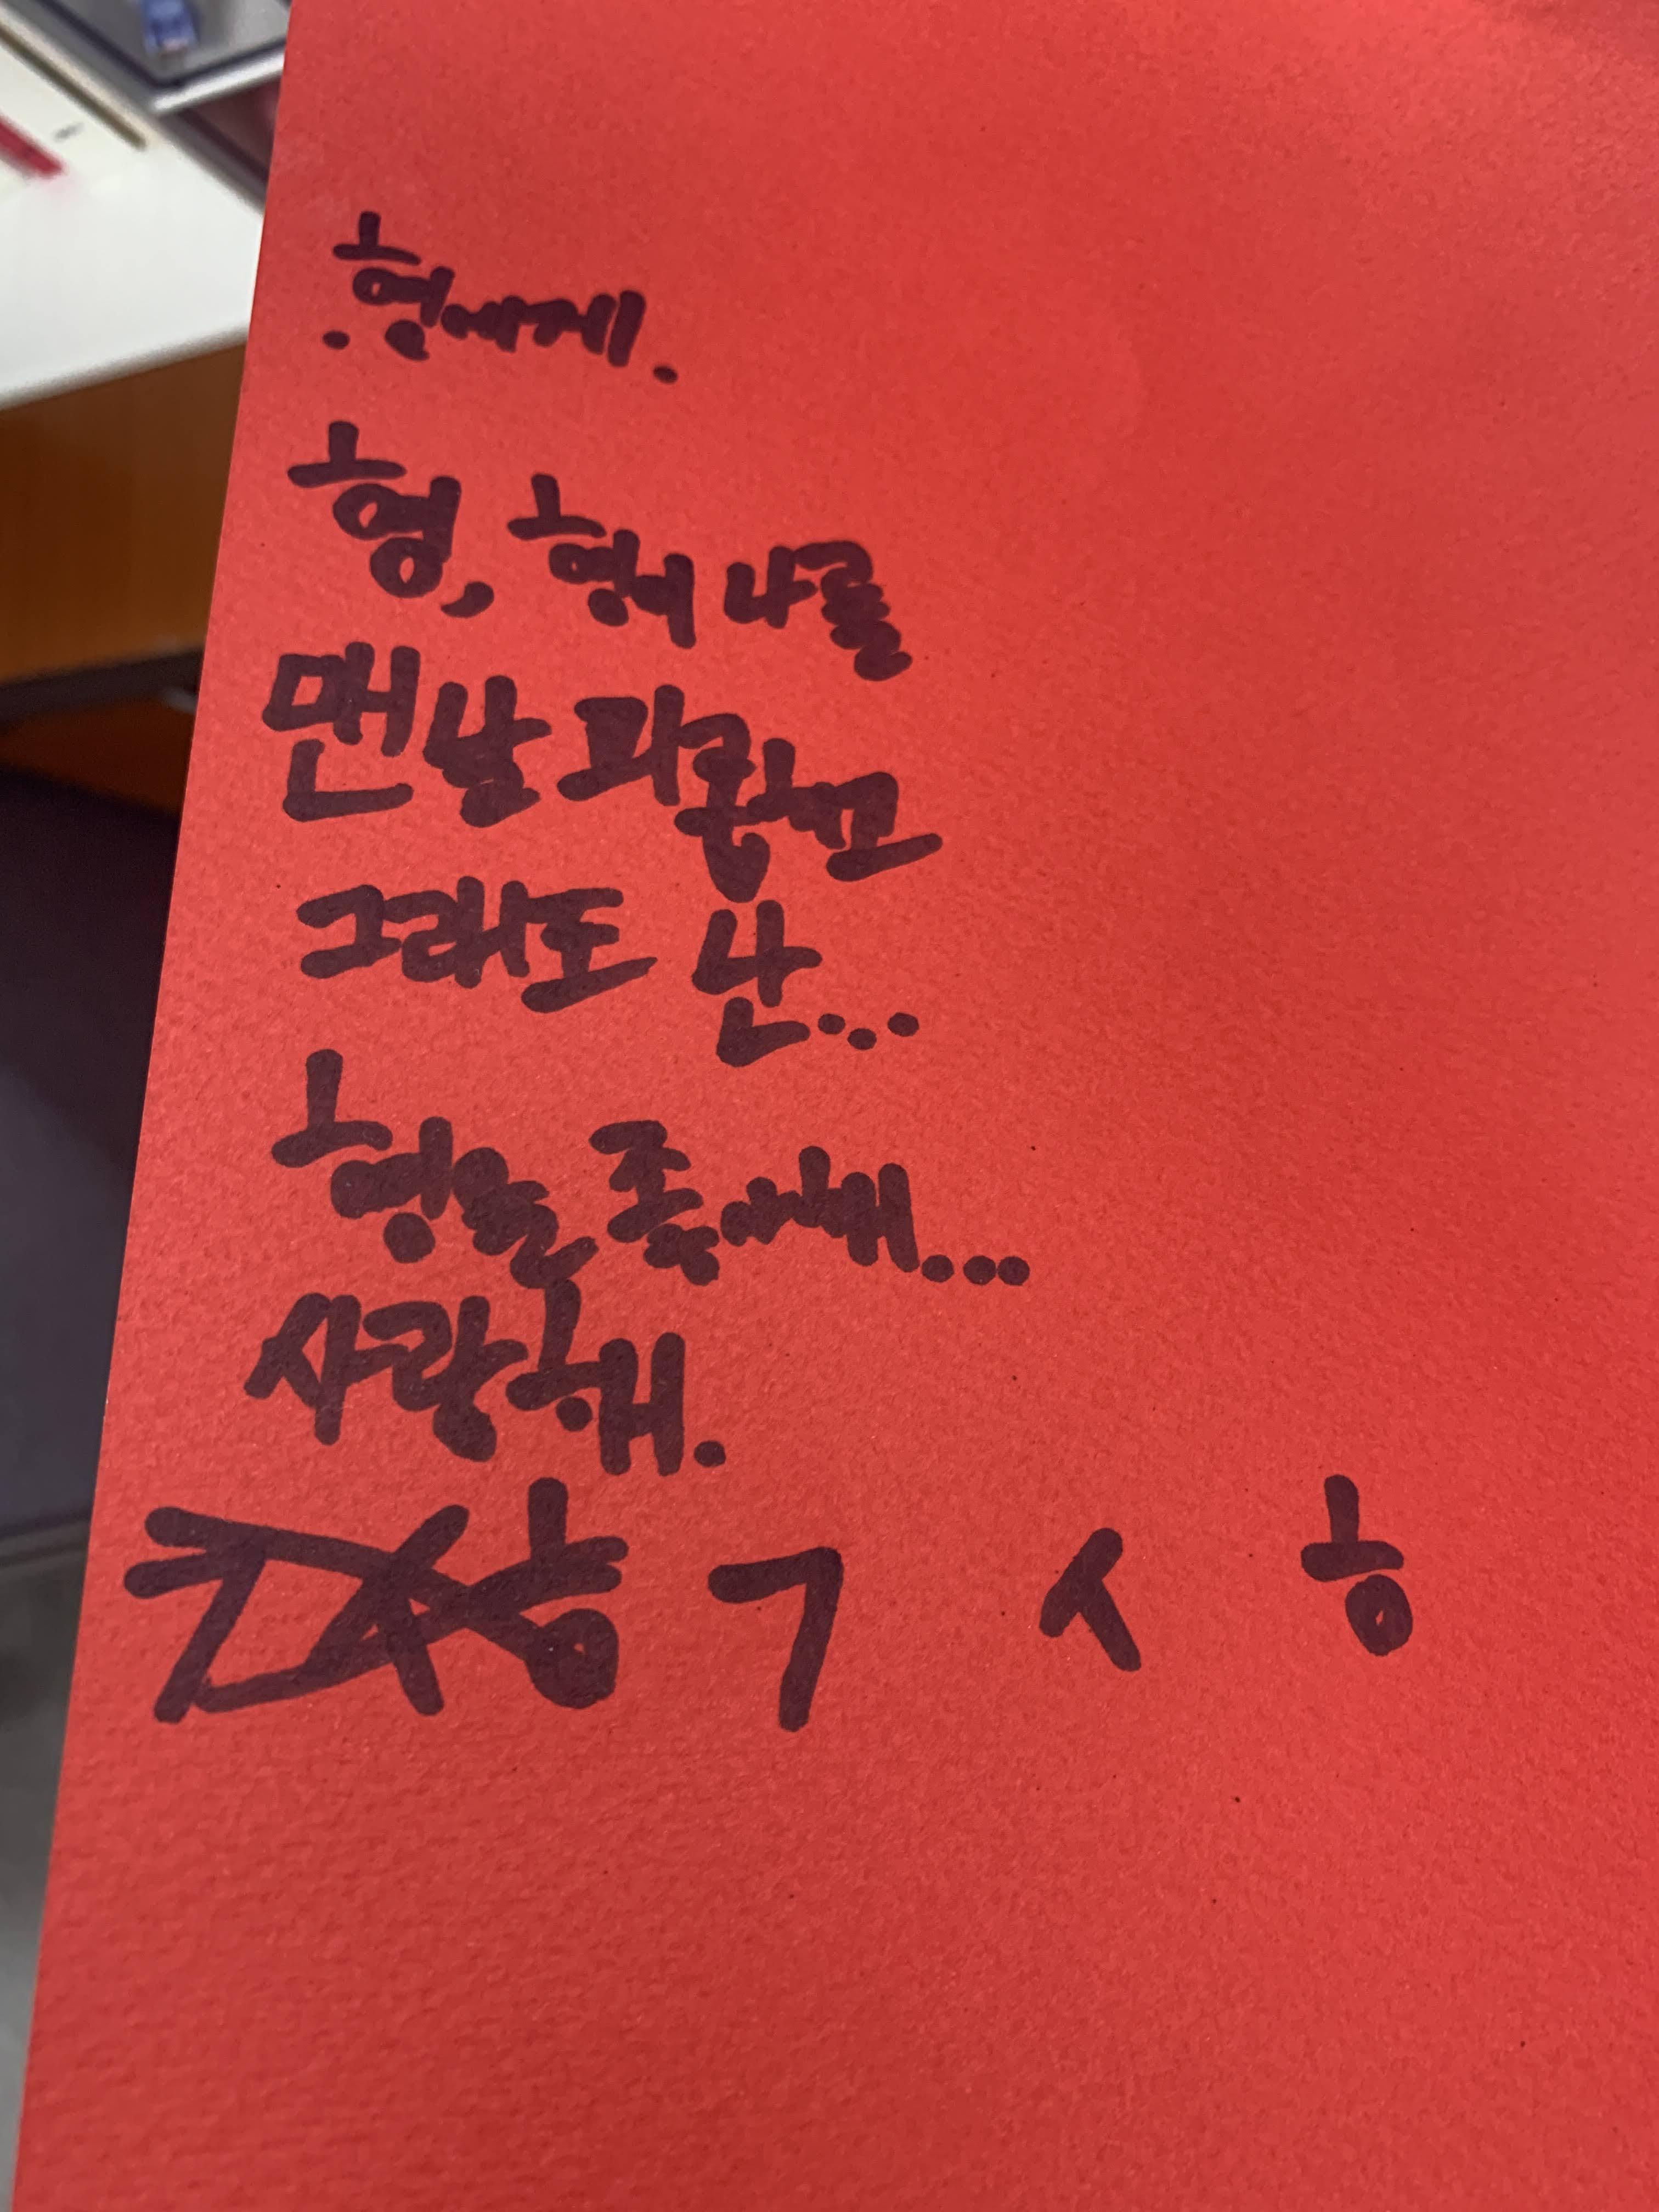 형에게.
형, 형이 나를
맨날 괴롭히고
그래도 난...
형을 좋아해...
사랑해.
ㄱ ㅅ ㅎ